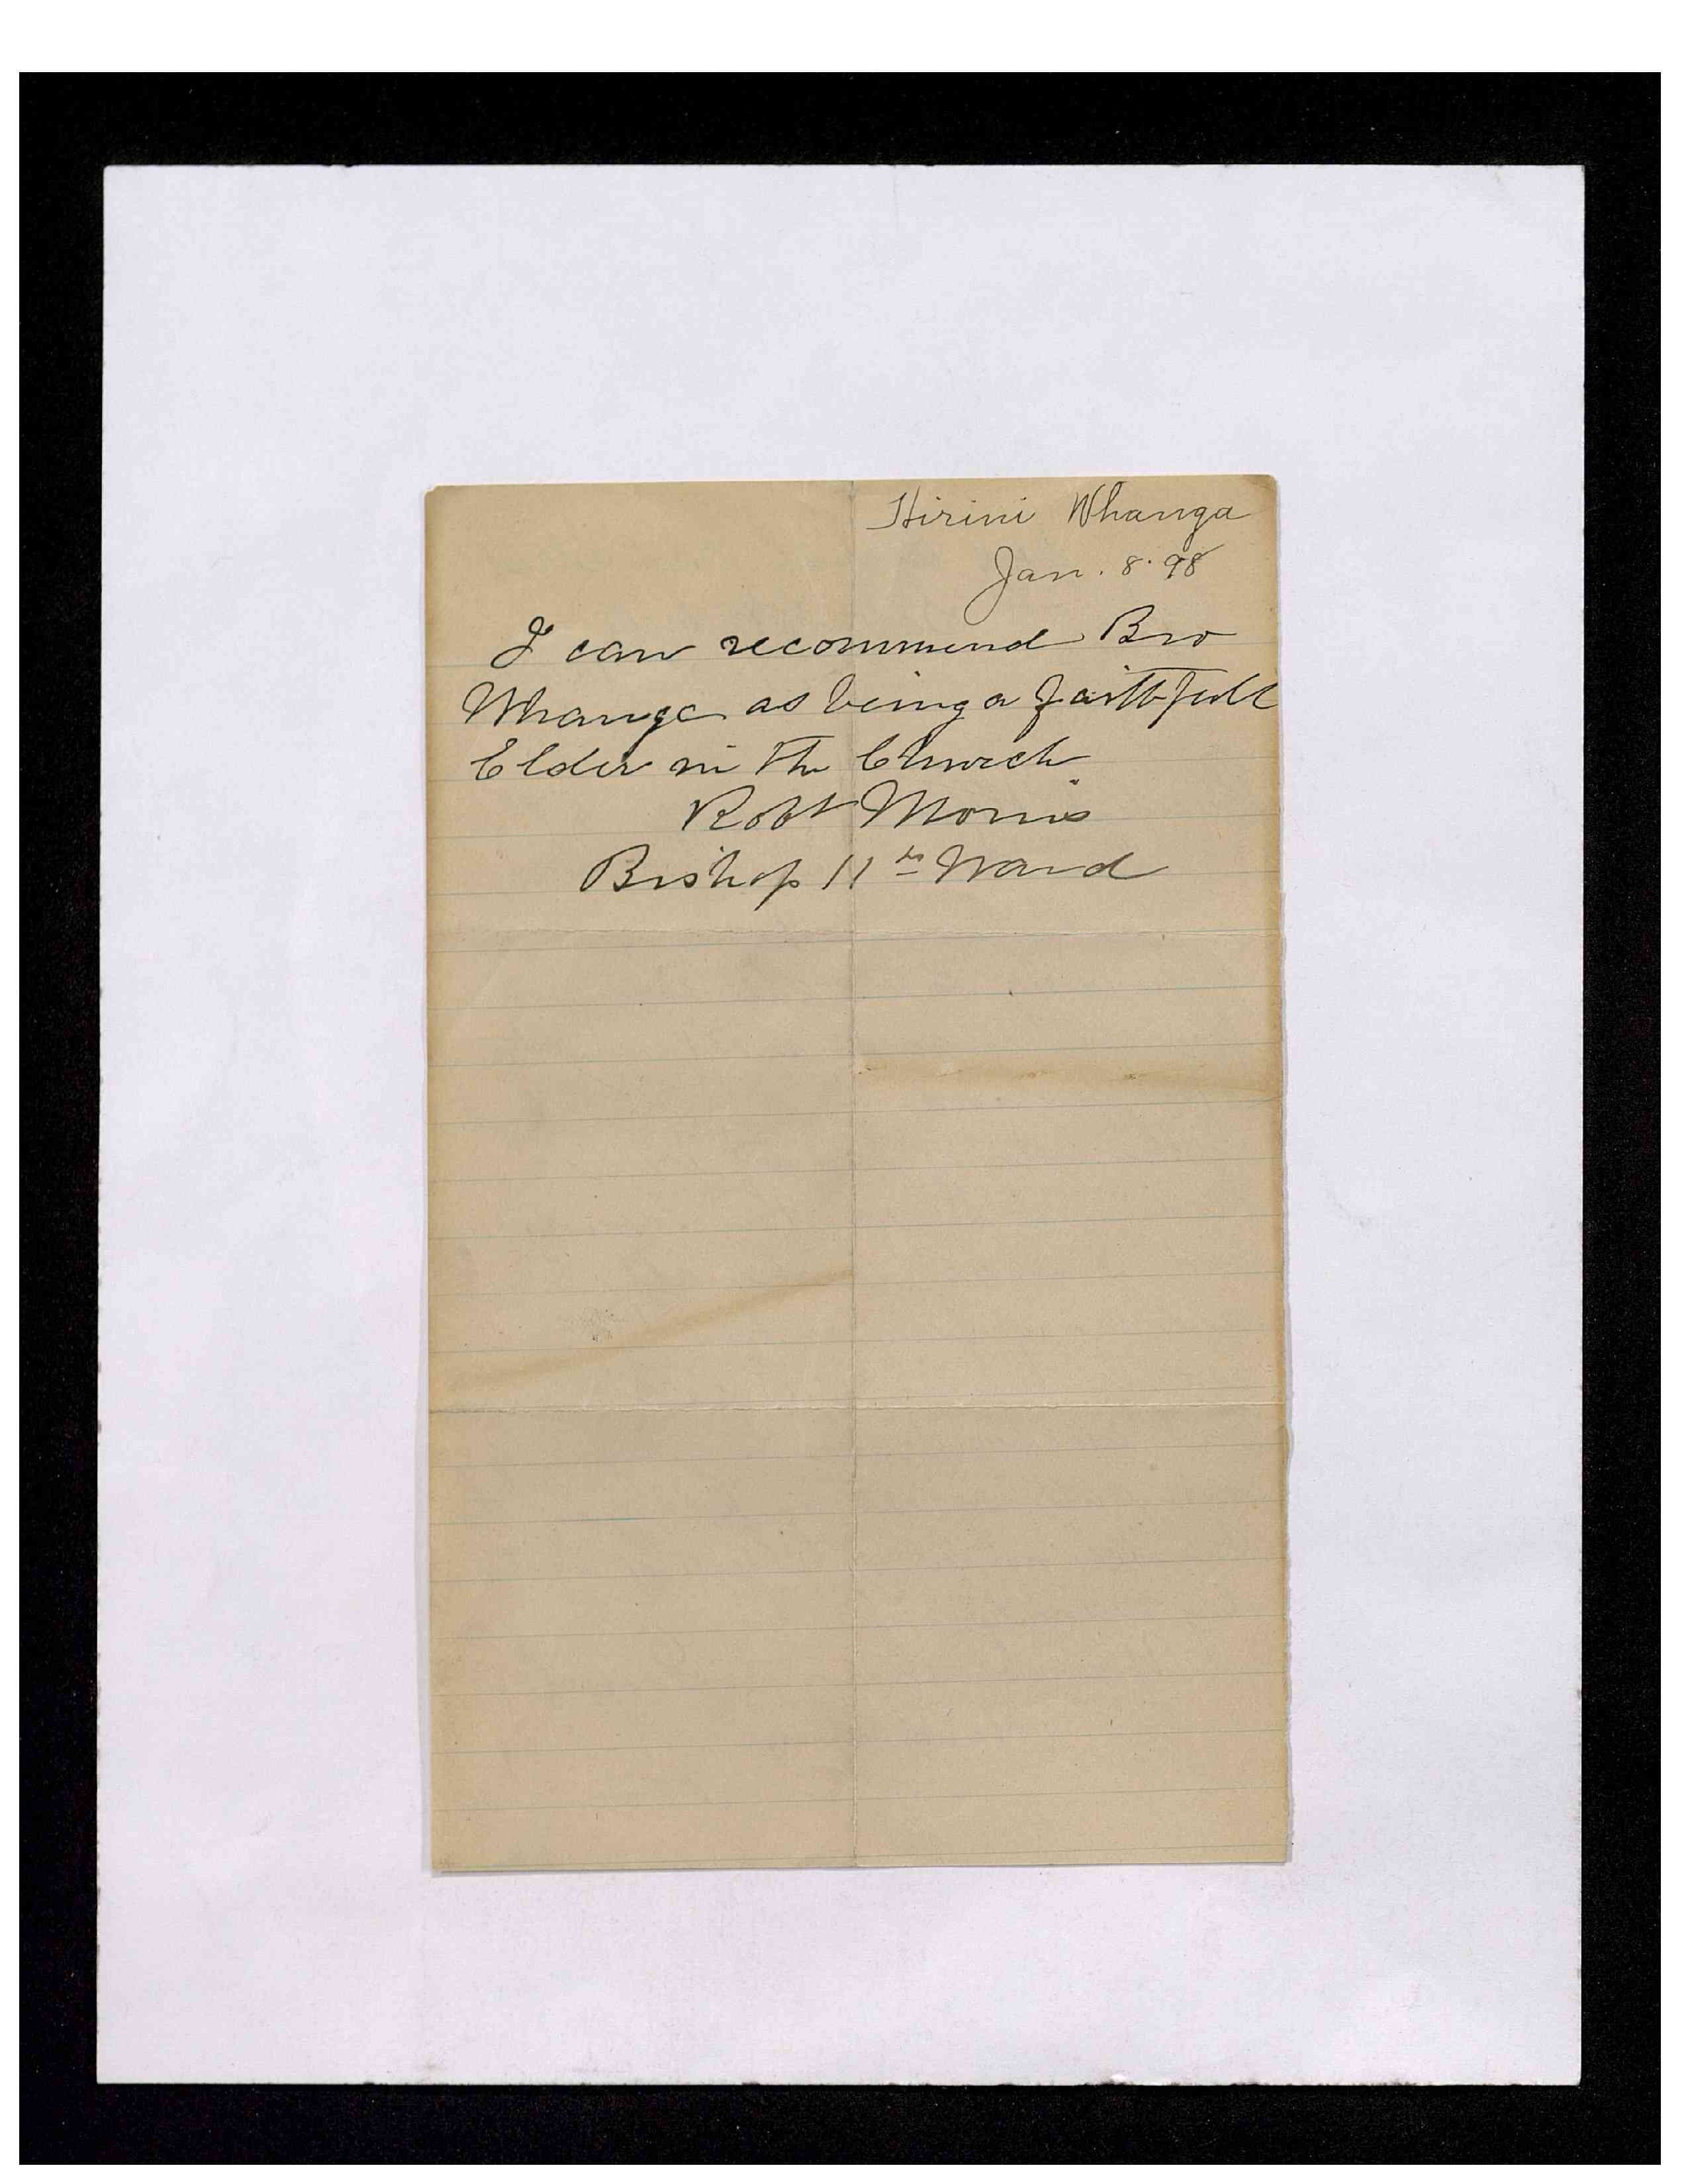 Hirini Whanga
Jan. 8. 98
I can recommend Bro
Whanga as being a faithfull
Elder in the Church
Robt Morris
Bishop 11th Ward